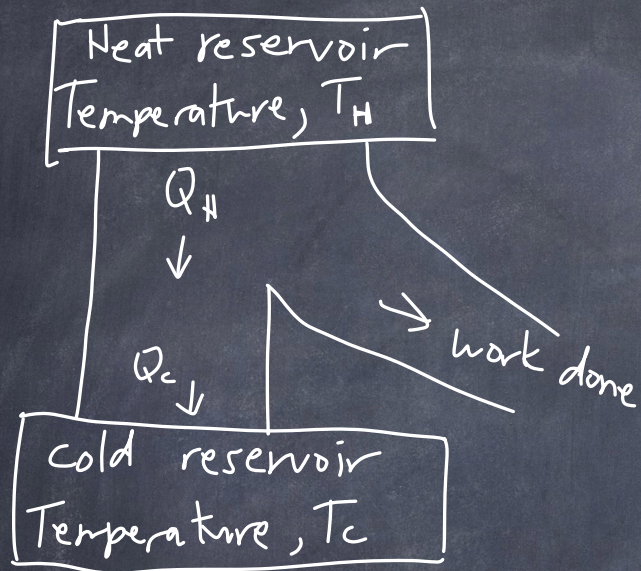 Heat reservoir
Temperature, T_H
Q_H
Q_c
work done
cold reservoir
Temperature, T_c